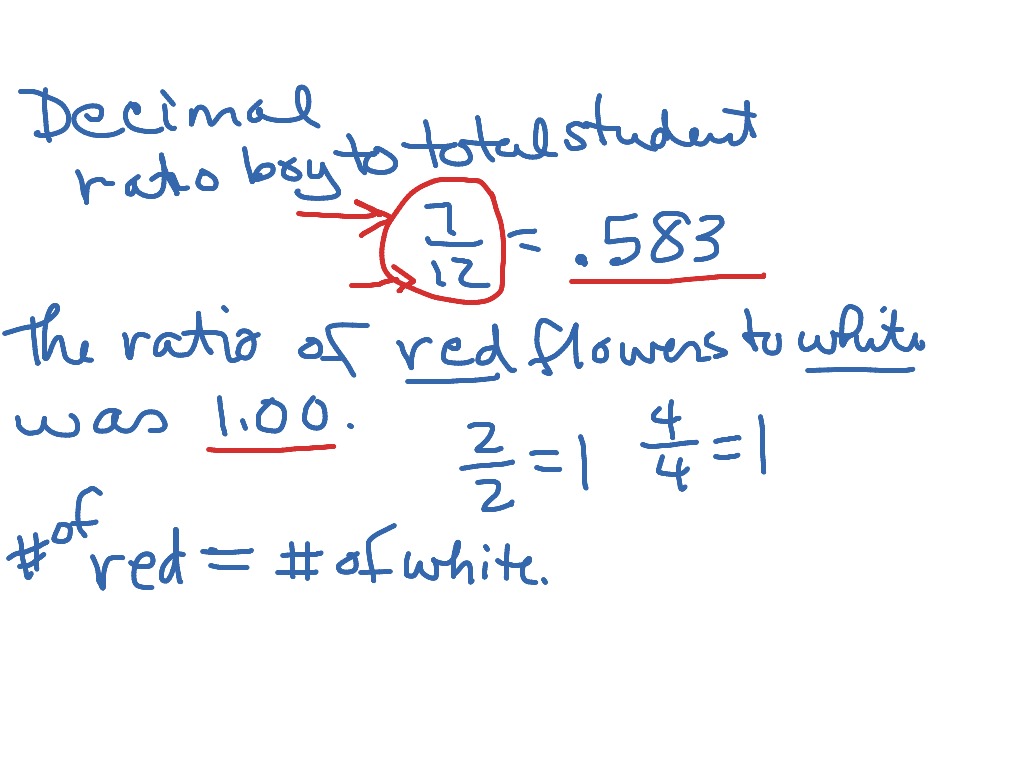 Decimal
ratio boy to total student
7/12 = .583
The ratio of red flowers to white
was 1.00. 2/2 = 1 4/4 = 1
# of red = # of white.